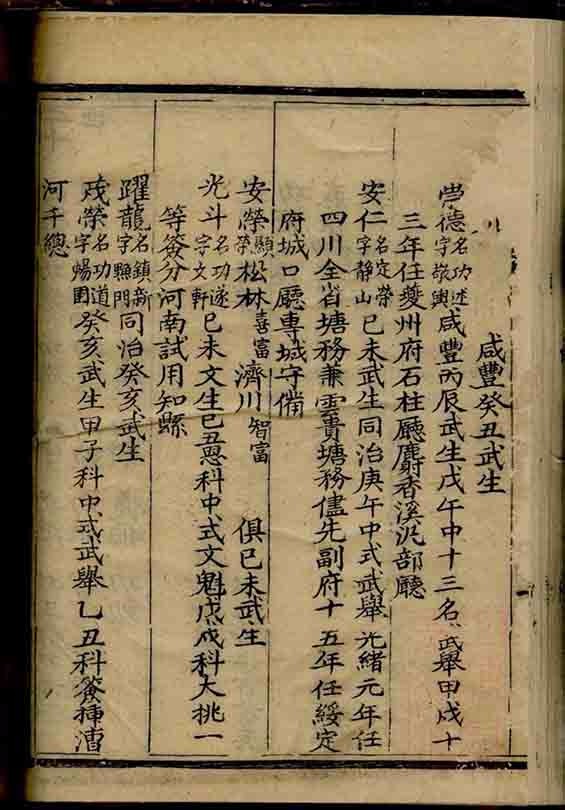 咸豐癸丑武生
崇德名功述字敬輿咸豐丙辰武生戊午中十三名武舉甲戌十
三年任夔州府石柱廳麝香溪汛部廳
安仁名定榮字靜山已未武生同治庚午中式武舉光緒元年任
四川全省塘務兼雲貴塘務儘先副府十五年任綏定
府城口廳專城守備
安榮顯榮松林喜富濟川智富俱已未武生
光斗名功遂字文軒已未文生已丑恩科中式文魁戊戌科大挑一
等簽分河南試用知縣
躍龍名鎮新字飛門同治癸亥武生
茂榮名功道字暢園癸亥武生甲子科中式武舉乙丑科簽揷漕
河千總